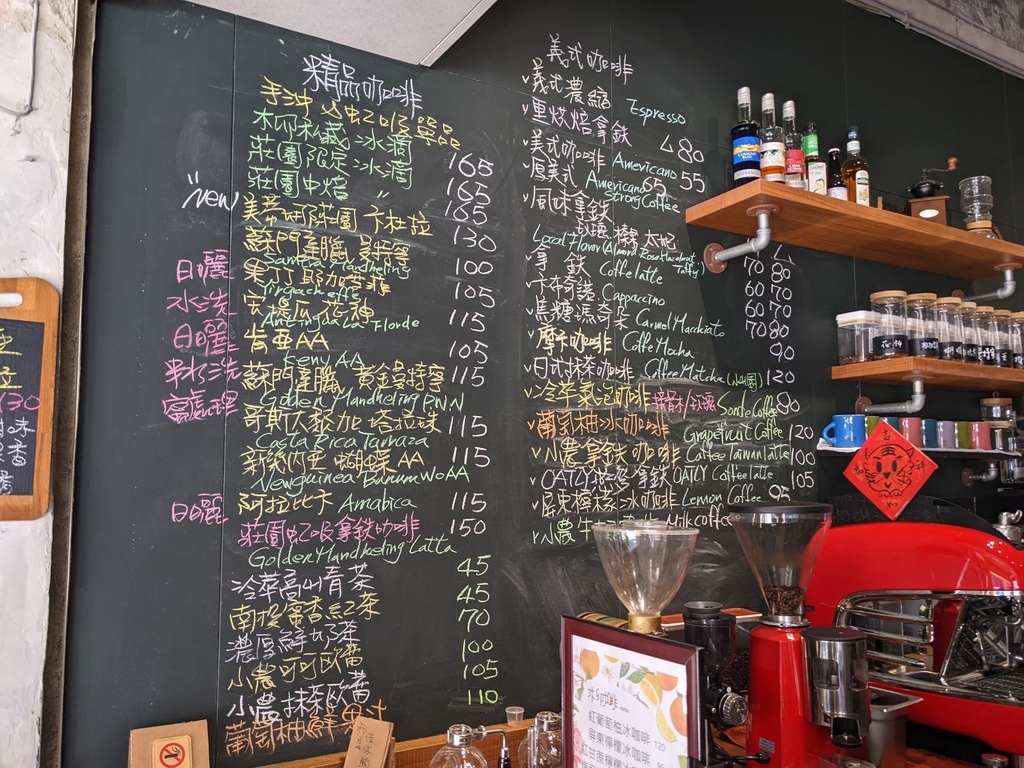 精品咖啡
手沖 虹吸 單品
私藏冰滴
莊園限定冰滴 165
莊園中焙 〃 165
165
"New"
莊園 卡杜拉 130
日曬 蘇門達臘 曼特寧 100
Sumatra Mandheling
水洗 耶加雪菲 105
Yirgacheffe
日曬 安提瓜花神 115
Antigua La Flor de
水洗 肯亞AA 105
Keny AA
蘇門達臘 黃金曼特寧 115
Golden Mandheling PWN
蜜處理
哥斯大黎加 塔拉珠 115
Costa Rica Tarraza
新幾內亞 蝴蝶AA 115
Newguinea Bunum Wo AA
日曬 阿拉比卡 Arabica 115
莊園虹吸拿鐵咖啡 150
Golden Mandheling Latta
冷萃高山青茶 45
南投蜜香紅茶 45
濃厚鮮奶茶 70
小農可可歐蕾 100
小農抹茶歐蕾 105
葡萄柚鮮果汁 110
義式咖啡
v義式濃縮 Espresso
v重烘焙拿鐵 80
v美式咖啡 Americano 55
v厚美式 Americano 65
Strong Coffee
v風味拿鐵
Local Flavor (Almond Rose Hazelnut
Taffy)
v拿 鐵 Coffe latte 70 80
v卡布奇諾 Cappuccino 60 70
v焦糖瑪奇朵 Carmel Macchiato 60 70
v摩卡咖啡 Coffe Mocha 70 80
v日式抹茶咖啡 Coffee Matcha 90
120
v冷萃氣泡咖啡 Sonde Coffee 80
v葡萄柚冰咖啡 Grapefruit Coffee 120
v小農拿鐵咖啡 Coffee Taiwan latte 100
vOATLY 燕麥拿鐵 OATLY Coffee latte 105
v屏東檸檬冰咖啡 Lemon Coffee 95
v小農牛 Milk coffee
130
味
香
咖啡
紅葡萄柚冰咖啡 120
屏東檸檬冰咖啡
紅甘蔗檸檬冰咖啡